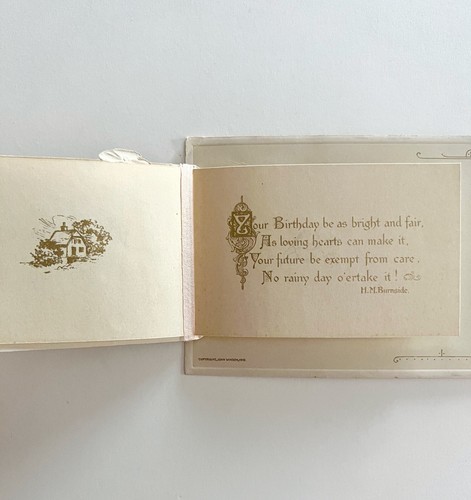 Your Birthday be as bright and fair,
As loving hearts can make it,
Your future be exempt from care,
No rainy day o'ertake it!
H.M.Burnside.